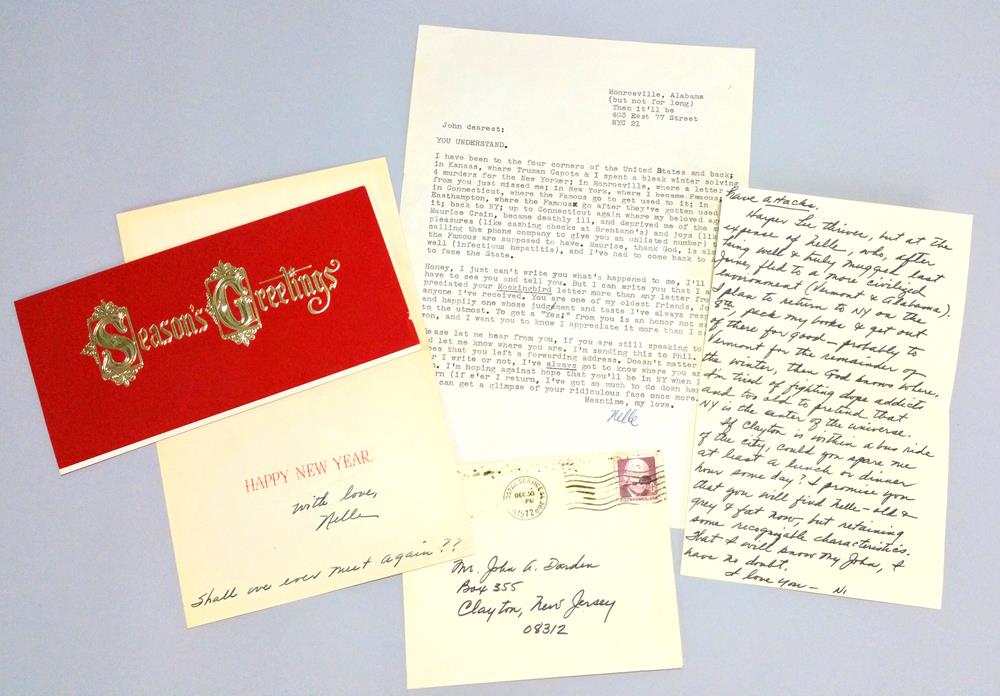 Season's Greetings
HAPPY NEW YEAR
With love,
Nelle
Shall we ever meet again??
Monroeville, Alabama
(but not for long)
Then it'll be
403 East 77 Street
NYC 21
John dearest:
YOU UNDERSTAND.
I have been to the four corners of the United States and back;
in Kansas, where Truman Capote & I spent a bleak winter solving
4 murders for the New Yorker; in Monroeville, where a letter
from you just missed me; in New York, where I became Famous;
in Connecticut, where the Famous go to get used to it; in
Easthampton, where the Famous go after they've gotten used
it; back to NY; up to Connecticut again where my beloved ag
Maurice Crain, became deathly ill, and deprived me of the
pleasures (like cashing checks at Brentano's) and joys (li
calling the phone company to give you an unlisted number)
the Famous are supposed to have. Maurice, thank God, is al
well (infectious hepatitis), and I've had to come back to
to face the State.
Honey, I just can't write you what's happened to me, I'll
have to see you and tell you. But I can write you that I a
preciated your Mockingbird letter more than any letter fro
anyone I've received. You are one of my oldest friends, Jo
and happily one whose judgment and taste I've always resp
to the utmost. To get a "Yes!" from you is an honor not e
won, and I want you to know I appreciate it more than I c
lease let me hear from you, if you are still speaking to
d let me know where you are. I'm sending this to Phil.
pes that you left a forwarding address. Doesn't matter
r I write or not, I've always got to know where you ar
. I'm hoping against hope that you'll be in NY when I
rn (if e'er I return, I've got so much to do down her
can get a glimpse of your ridiculous face once more.
Meantime, my love.
Nelle
DEC 30
PM
1972
EISENHOWER·USA
Mr. John A. Darden
Box 355
Clayton, New Jersey
08312
Have a Hacks.
Harper Lee thrives, but at the
expense of Nelle, who, after
being well & truly mugged last
June, fled to a more civilized
environment (Vermont & Alabama).
I plan to return to NY on the
pack my books & get out
of there for good — probably to
Vermont for the remainder of
the winter, then God knows where.
I'm tired of fighting dope addicts
and too old to pretend that
NY is the center of the universe.
If Clayton is within a bus ride
of the city, could you spare me
at least a lunch or dinner
hour some day? I promise you
that you will find Nelle — old &
grey & fat now, but retaining
some recognizable characteristics.
That I will know my John, I
have no doubt.
I love you — N.